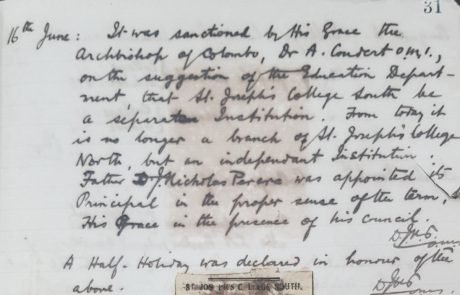 31
16th June: It was sanctioned by His Grace the
Archbishop of Colombo, Dr A. Coudert OMI.,
on the suggestion of the Education Depart-
ment, that St. Joseph's College South be
a separate Institution. From today it
is no longer a branch of St. Joseph's College
North, but an independant Institution.
Father D.J. Nicholas Perera was appointed its
Principal in the proper sense of the term, by
His Grace in the presence of his council.
A Half-Holiday was declared in honour of the
above.
ST. JOSEPH'S COLLEGE SOUTH.